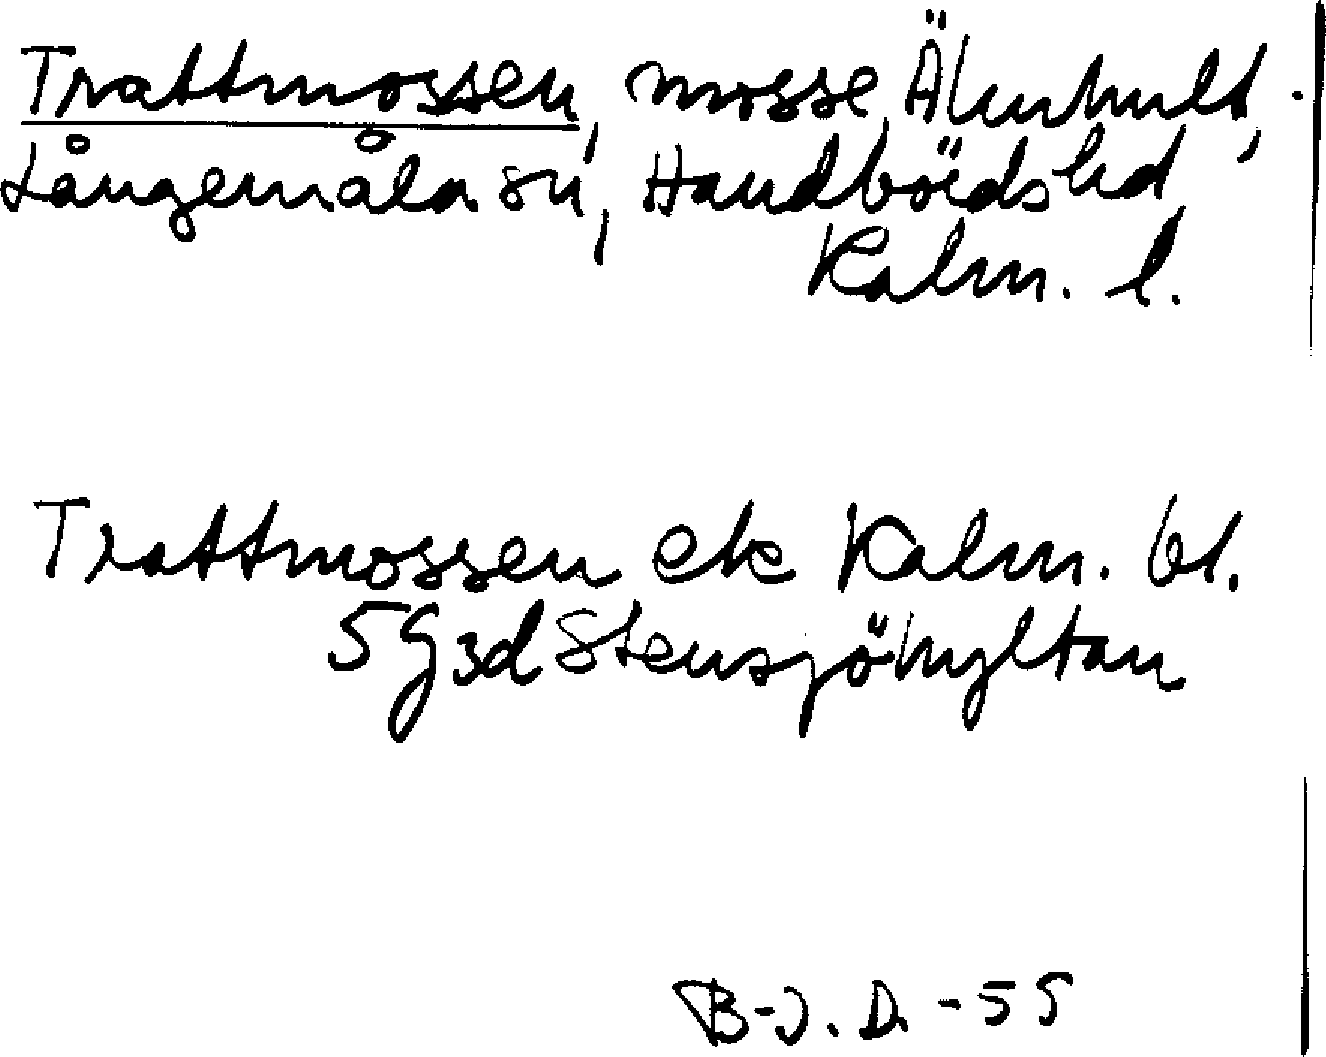 Trattmossen, mosse, Älmhult,
Långemåla sn, Handbörds hd
Kalm. l.
Trattmossen ek Kalm. bl.
5G3d Stensjöhyltan
B-J. D. -55